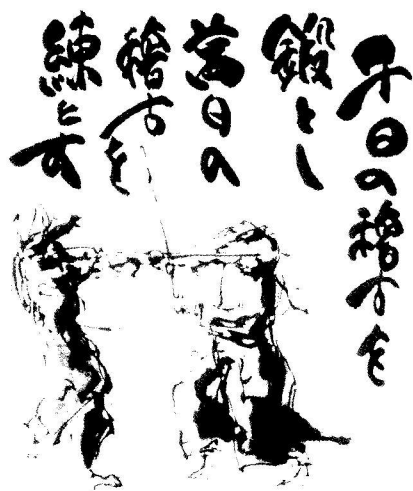 千日の稽古を
鍛とし
萬日の
稽古を
練とす